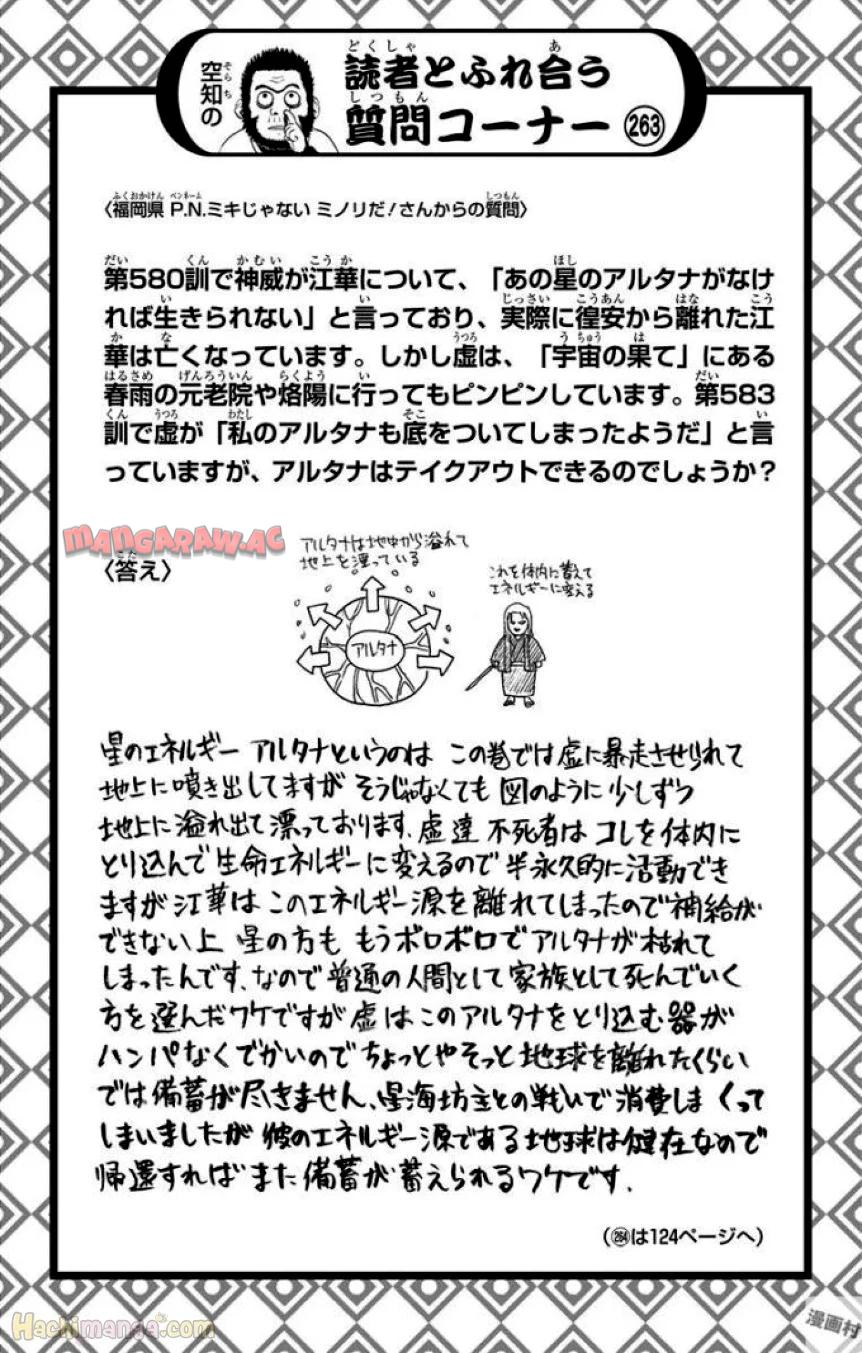 空知の
読者とふれ合う
質問コーナー 263
〈福岡県 P.N.ミキじゃない ミノリだ!さんからの質問〉
第580訓で神威が江華について、「あの星のアルタナがなけ
れば生きられない」と言っており、実際に徨安から離れた江
華は亡くなっています。しかし虚は、「宇宙の果て」にある
春雨の元老院や烙陽に行ってもピンピンしています。第583
訓で虚が「私のアルタナも底をついてしまったようだ」と言
っていますが、アルタナはテイクアウトできるのでしょうか?
MANGARAW.AC
〈答え〉
アルタナは地中から溢れて
地上を漂っている
これを体内に蓄えて
エネルギーに変える
アルタナ
星のエネルギー アルタナというのは この巻では虚に暴走させられて
地上に噴き出してますが そうじゃなくても 図のように 少しずつ
地上に溢れ出て漂っております、虚達 不死者は コレを体内に
とり込んで生命エネルギーに変えるので半永久的に活動でき
ますが江華は このエネルギー源を離れてしまったので補給が
できない上 星の方も もうボロボロでアルタナが枯れて
しまったんです、なので普通の人間として家族として死んでいく
方を選んだワケですが虚はこのアルタナをとり込む器が
ハンパなくでかいのでちょっとやそっと地球を離れたくらい
では備蓄が尽きません、星海坊主との戦いで消費しまくって
しまいましたが 彼のエネルギー源である地球は健在なので
帰還すれば また備蓄が蓄えられるワケです.
(264は124ページへ)
Hachimanga.com
漫画村